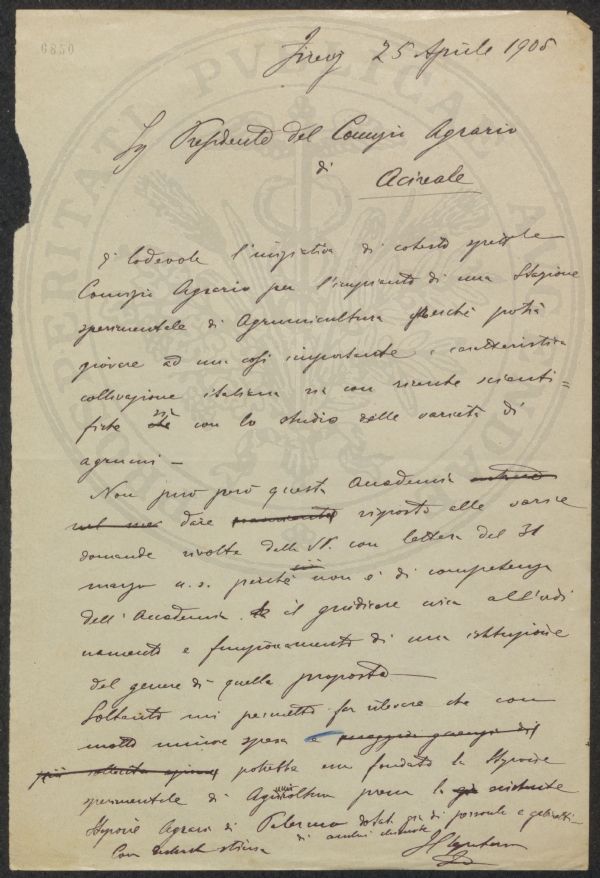 6850
PROSPERITATI PUBLICAE AUGENDAE
Firenze 25 Aprile 1905
Sig Presidente del Comizio Agrario
di
Acireale
È lodevole l'iniziativa di cotesto spettabile
Comizio Agrario per l'impianto di una Stazione
sperimentale di Agrumicultura perché potrà
giovare ad una così importante e caratteristica
coltivazione italiana sia con ricerche scienti=
fiche sia con lo studio delle varietà di
agrumi —
Non può però questa Accademia
nel dare risposta alle varie
domande rivolte dalla SV. con lettera del 31
marzo u.s. perché non è di competenza
dell'Accademia il giudicare circa all'ordi
namento e funzionamento di una istituzione
del genere di quella proposta —
Soltanto mi permetto far rilevare che con
molto minore spesa e maggiore garanzia di
più sollecita potrebbe esser fondata la Stazione
sperimentale di Agrumicoltura presso la già esistente
Stazione Agraria di Palermo dotata già di personale e gabinetti
di analisi
Con stima